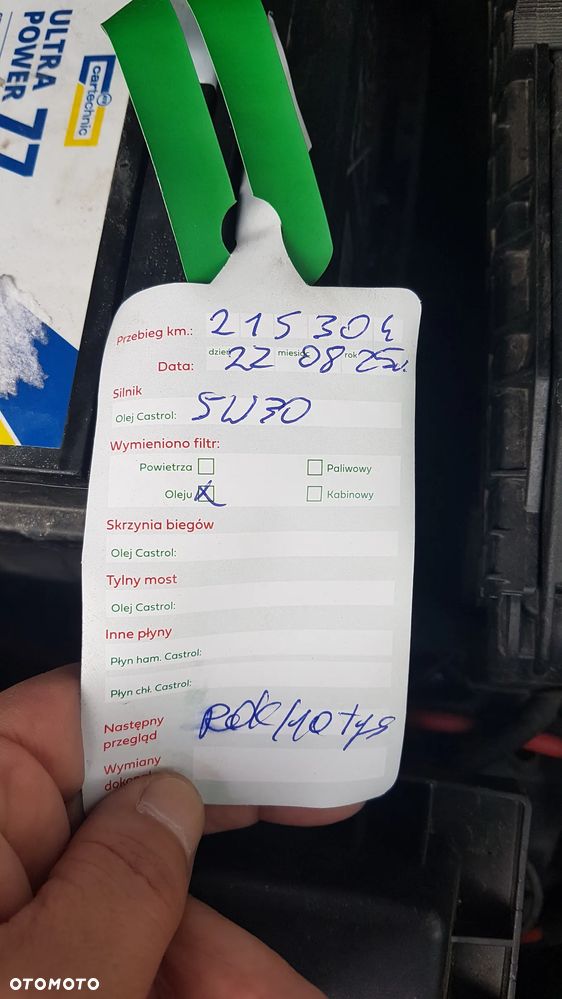 ULTRA
POWER
77
cartechnic
Przebieg km.: 215304
Data: dzień 22 miesiąc 08 rok 25r.
Silnik
Olej Castrol: 5W30
Wymieniono filtr:
Powietrza Paliwowy
Oleju x Kabinowy
Skrzynia biegów
Olej Castrol:
Tylny most
Olej Castrol:
Inne płyny
Płyn ham. Castrol:
Płyn chł. Castrol:
Następny
przegląd ROK/10 tys
Wymiany
OTOMOTO